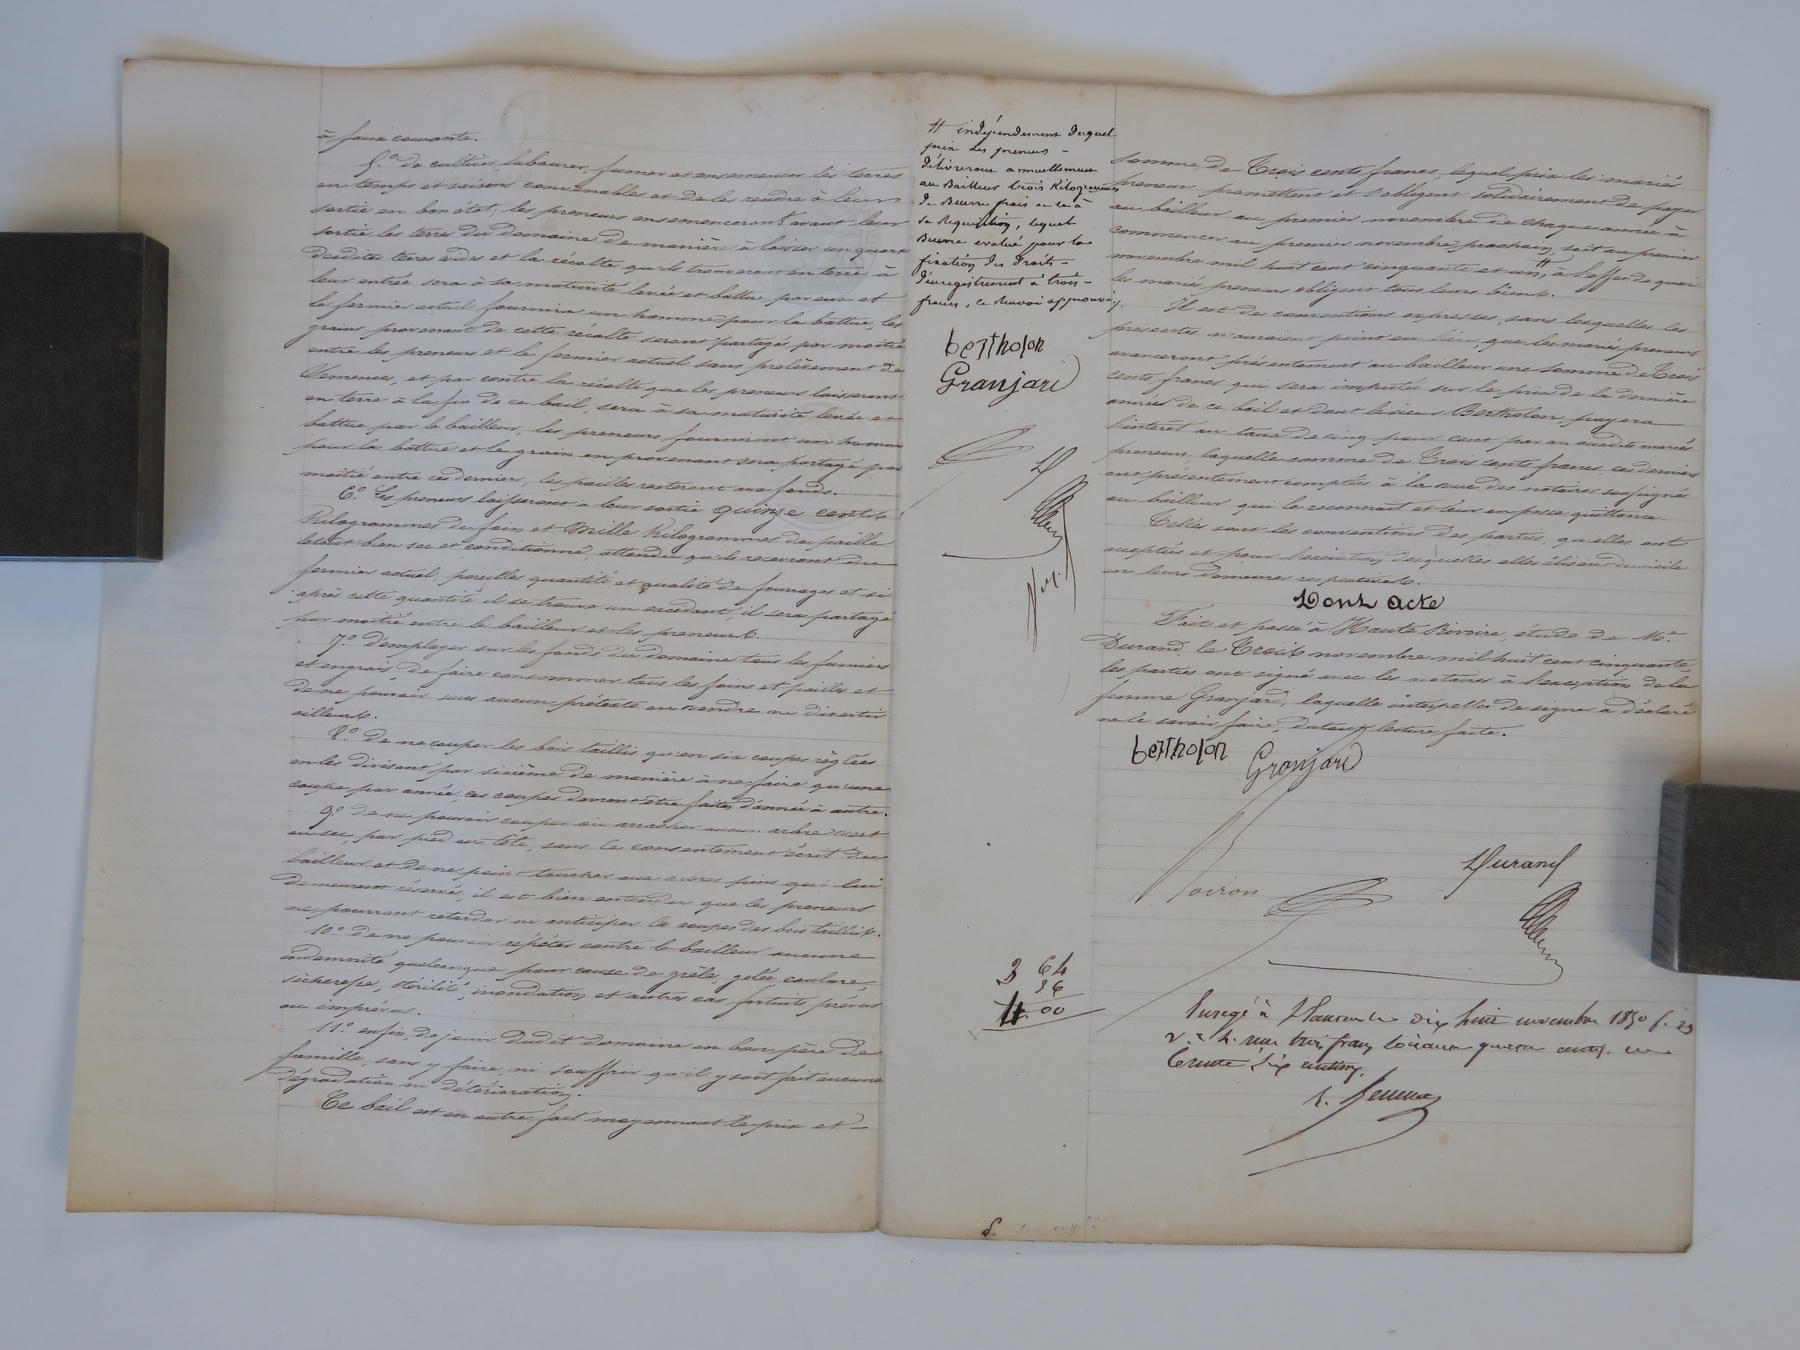 à faux courante.
5.° de cultiver, labourer, fumer et ensemencer les terres
en temps et saisons convenables et de les rendre à leur
sortie en bon état; les preneurs ensemenceront avant leur
sortie les terres du domaine de manière à laisser un quart
desdites terres vides et la récolte qu'ils trouveront en terre à
leur entrée sera à sa maturité levée et battue par eux et
le fermier actuel fournira un homme pour la battue, les
grains provenant de cette récolte seront partagés par moitié
entre les preneurs et le fermier actuel sans prélèvement de
semences, et par contre la récolte que les preneurs laisseront
en terre à la fin de ce bail sera à sa maturité levée et
battue par le bailleur, les preneurs fourniront un homme
pour la battue et le grain en provenant sera partagé par
moitié entre ces derniers, les pailles resteront aux fonds.
6.° Les preneurs laisseront à leur sortie quinze cents
kilogrammes de foin et mille kilogrammes de paille
le tout bien sec et conditionné, attendu qu'ils recevront du
fermier actuel, pareilles quantité et qualité de fourrages et si
après cette quantité il se trouve un excédant, il sera partagé
par moitié entre le bailleur et les preneurs.
7.° d'employer sur les fonds du domaine tous les fumiers
et engrais de faire consommer tous les foins et pailles et
de ne pouvoir sous aucun prétexte en vendre ni divertir
ailleurs.
8.° de ne couper les bois taillis qu'en six coupes réglées
en les divisant par sixième de manière à ne faire qu'une
coupe par année, ces coupes devront être faites d'année à autre.
9.° de ne pouvoir couper ou arracher aucun arbre vert
ou sec, par pied ou tête, sans le consentement écrit du
bailleur et de ne point toucher aux arbres pins qui lui
demeurent réservés, il est bien entendu que les preneurs
ne pourront retarder ni anticiper la coupe des bois taillis.
10.° de ne pouvoir répéter contre le bailleur aucune
indemnité quelconque pour cause de grêle, gelée, coulure,
sècheresse, stérilité, inondation et autres cas fortuits prévus
ou imprévus.
11.° enfin, de jouir dudit domaine en bon père de
famille, sans y faire, ni souffrir qu'il y soit fait aucune
dégradation ni détérioration.
Ce bail est en outre fait moyennant le prix et
# indépendament duquel
prix les preneurs
délivreront annuellement
au Bailleur trois Kilogrammes
de Beurre frais
sa Requisition, lequel
Beurre évalué pour la
fixation des Droits
d'enregistrement à trois
francs, ce Renvoi approuvé
bertholon
Granjard
D
somme de Trois cents francs, lequel prix les mariés
preneurs promettent et s'obligent solidairement de payer
au bailleur au premier novembre de chaque année à
commencer au premier novembre prochain, soit au premier
novembre mil huit cent cinquante et un, à l'effet de quoi
les mariés preneurs obligent tous leurs biens.
Il est de conventions expresses, sans lesquelles les
présentes n'auraient point eu lieu, que les mariés preneurs
avanceront présentement au bailleur une somme de Trois
cents francs qui sera imputée sur le prix de la dernière
année de ce bail et dont le sieur Bertholon, payera
l'intérêt au taux de cinq pour cent par an auxdits mariés
preneurs, laquelle somme de Trois cents francs ces derniers
ont présentement comptée à la vue des notaires soussignés
au bailleur, qui le reconnait et leur en passe quittance.
Telles sont les conventions des parties, qu'elles ont
acceptées et pour l'exécution desquelles elles élisent domicile
en leurs demeures respectives.
Dont Acte
Fait et passé à Haute Rivoire, étude de M.e
Durand, le Trois novembre mil huit cent cinquante
les parties ont signé avec les notaires à l'exception de la
femme Granjard, laquelle interpellée de signer a déclaré
ne le savoir faire, du tout lecture faite.
bertholon Granjard
Durand
Noiron
3 64
36
4.00
Enregé à St Laurent le dix huit novembre 1850 f. 23
trois francs soixante quatre cent.
trente six centimes.